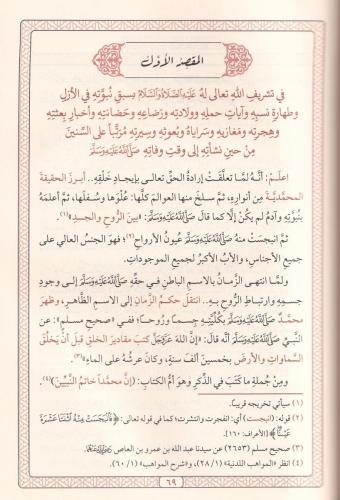 المقصد الأول
في تشريف الله تعالى له عليه الصلاة والسلام بسبق نبوّته في الأزل
وطهارة نسبه وآيات حمله وولادته ورضاعه وحضانته وأخبار بعثته
وهجرته ومغازيه وسراياه وبعوثه وسيرته مرتّباً على السنين
من حين نشأته إلى وقت وفاته ﷺ
اعلم: أنه لما تعلّقت إرادة الحق تعالى بإيجاد خلقه.. أبرز الحقيقة
المحمدية من أنواره، ثم سلخ منها العوالم كلّها: علوها وسفلها، ثم أعلمه
بنبوّته وآدم لم يكن إلا كما قال ﷺ: «بين الروح والجسد»(١).
ثم انبجست منه ﷺ عيون الأرواح(٢)؛ فهو الجنس العالي على
جميع الأجناس، والأب الأكبر لجميع الموجودات.
ولما انتهى الزمان بالاسم الباطن في حقّه ﷺ إلى وجود
جسمه وارتباط الروح به.. انتقل حكم الزمان إلى الاسم الظاهر، وظهر
محمد ﷺ بكلّيته جسماً وروحاً؛ ففي «صحيح مسلم»: عن
النبي ﷺ أنه قال: «إن الله عزّ وجلّ كتب مقادير الخلق قبل أن يخلق
السماوات والأرض بخمسين ألف سنة، وكان عرشه على الماء»(٣).
ومن جملة ما كتب في الذّكر وهو أم الكتاب: (إن محمداً خاتم النبيين)(٤).
(١) سيأتي تخريجه قريباً.
(٢) قوله: (انبجست) أي: انفجرت وانتشرت؛ كما في قوله تعالى: ﴿فَٱنۢبَجَسَتْ مِنْهُ ٱثْنَتَا عَشْرَةَ
عَيْنًا﴾ [الأعراف: ١٦٠].
(٣) صحيح مسلم (٢٦٥٣) عن سيدنا عبد الله بن عمرو بن العاص
(٤) انظر «المواهب اللدنية» (٢٨/١)، و«شرح المواهب» (٦٠/١).
٦٩